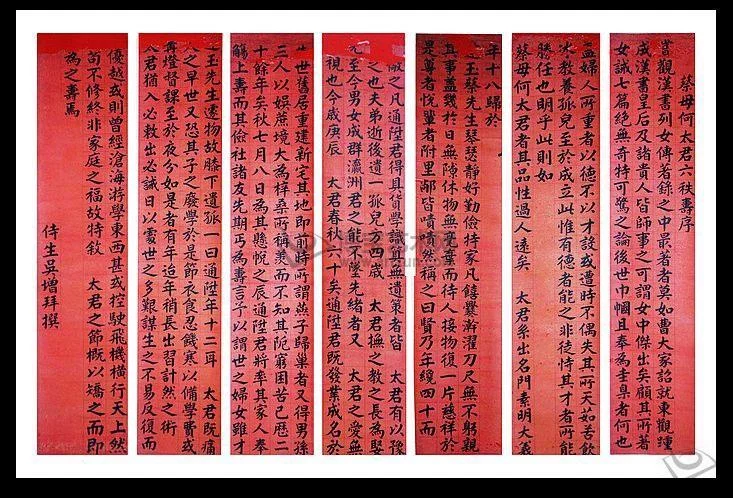 蔡母何太君六秩壽序
嘗觀漢書列女傳者錄之中最著者莫如曹大家詔就東觀踵
成漢書皇后及諸貴人皆師事之可謂女中傑出矣顧其所著
女誡七篇絕無奇特可驚之論後世巾幗且奉為圭臬者何也
蓋婦人所重者以德不以才設或遭時不偶失其所天茹苦飲
冰教養孤兒至於成立此惟有德者能之非徒恃其才者所能
勝任也明乎此則如
蔡母何太君者其品性過人遠矣 太君系出名門素明大義
年十八歸於
玉蔡先生琴瑟靜好勤儉持家凡饎爨澣濯刀尺無不躬親
其事蓋幾於日無隙休物無棄葉而待人接物復一片慈祥於
是尊者悅輩者附里鄰皆嘖嘖然稱之曰賢乃年纔四十而
之凡通陞君得具貨學識算無遺策者皆 太君有以豫
之也夫弟逝後遺一孤兒年四歲 太君撫之教之長為娶
至今男女成群瀛洲君之能不墜先緒者又 太君之愛無
視也今歲庚辰 太君春秋六十矣通陞君既發業成名於
世舊居重建新宅其地即前時所謂燕子歸巢者又得男孫
三人以娛蔗境大為梓桑所稱羨而不知其阨窮困苦已歷二
十餘年矣秋七月八日為其懸帨之辰通陞君將率其家人奉
觴上壽而其儉社諸友先期丐為壽言予以謂世之婦女雖才
玉先生遽物故膝下遺孤一曰通陞年十二耳 太君既痛
之早世又恐其子之廢學於是節衣食忍饑寒以備學費或
再燈督課至於夜分如是者有年迨年稍長出習計然之術
君猶入必敕出必誡日以處世之多艱謀生之不易反復而
優越或則曾經滄海游學東西甚或控駛飛機橫行天上然
苟不修終非家庭之福故特敘 太君之節概以矯之而即
為之壽焉
侍生吳增拜撰